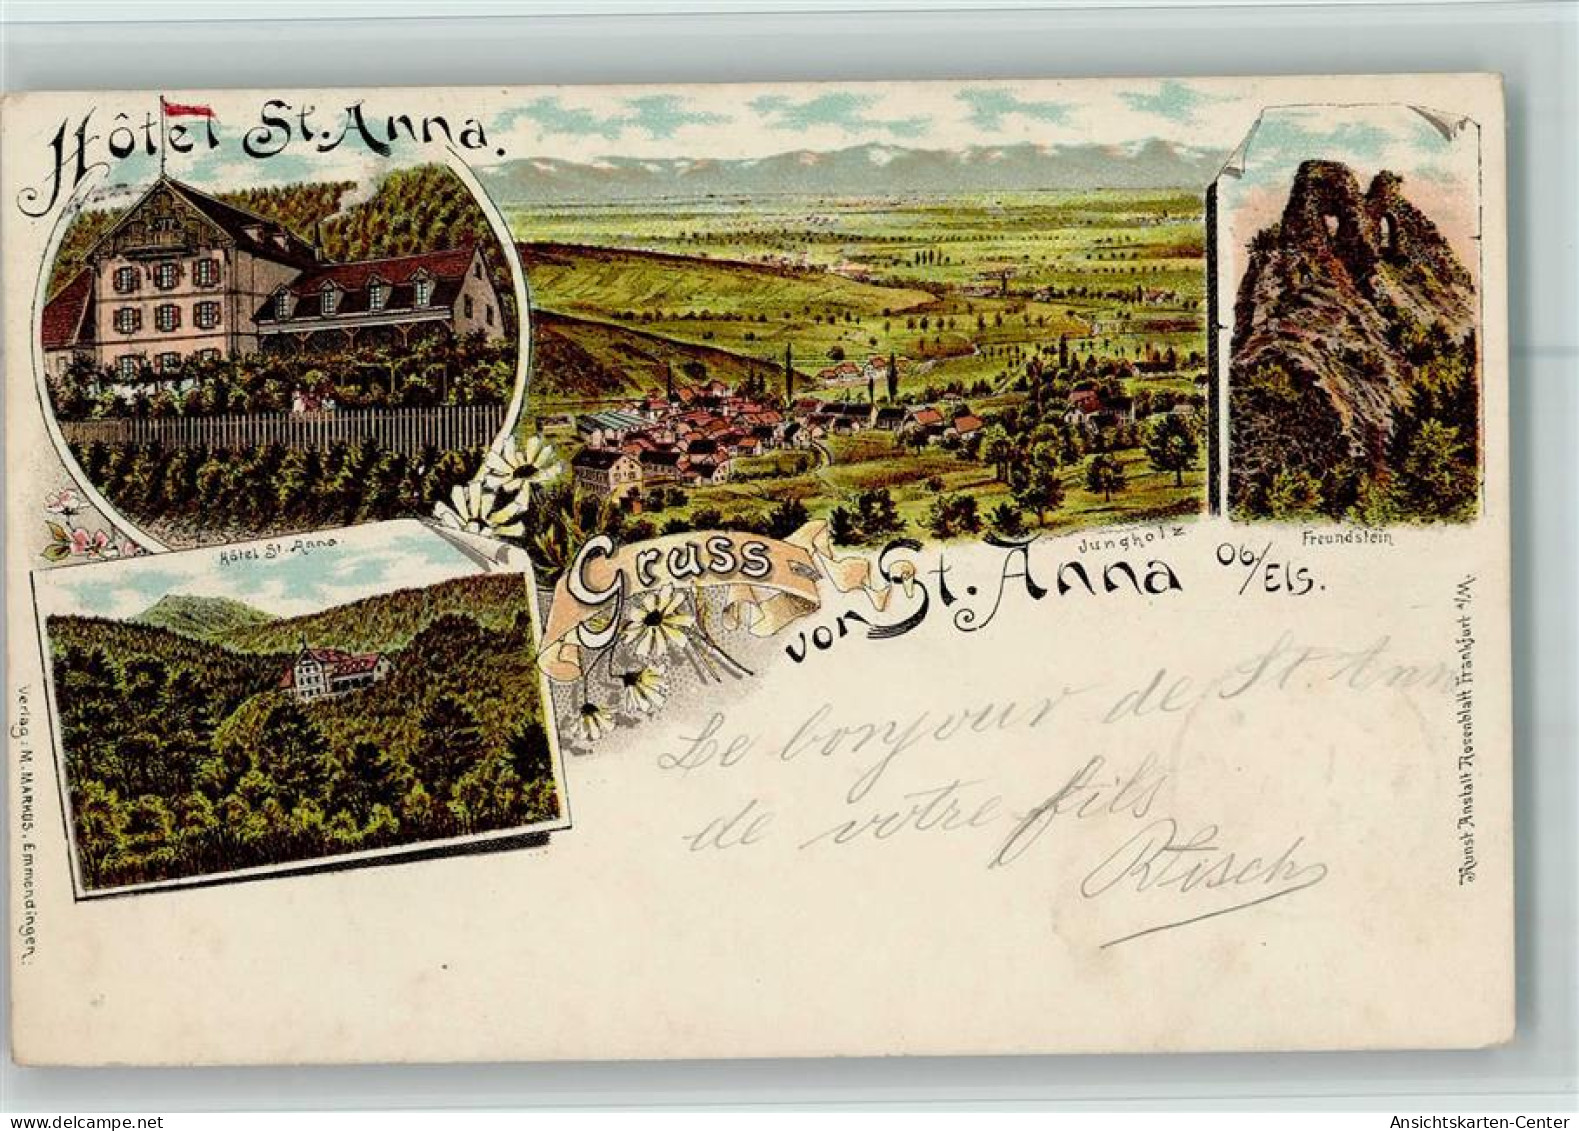 Hôtel St. Anna.
Hôtel St. Anna.
Jungholz
Freundstein
Gruss
von St. Anna Ob/Els.
Le bonjour de St. Ann
de votre fils
Verlag: M. MARKUS. Emmendingen.
Kunst Anstalt Rosenblatt Frankfurt a/M.
delcampe.net
Ansichtskarten-Center